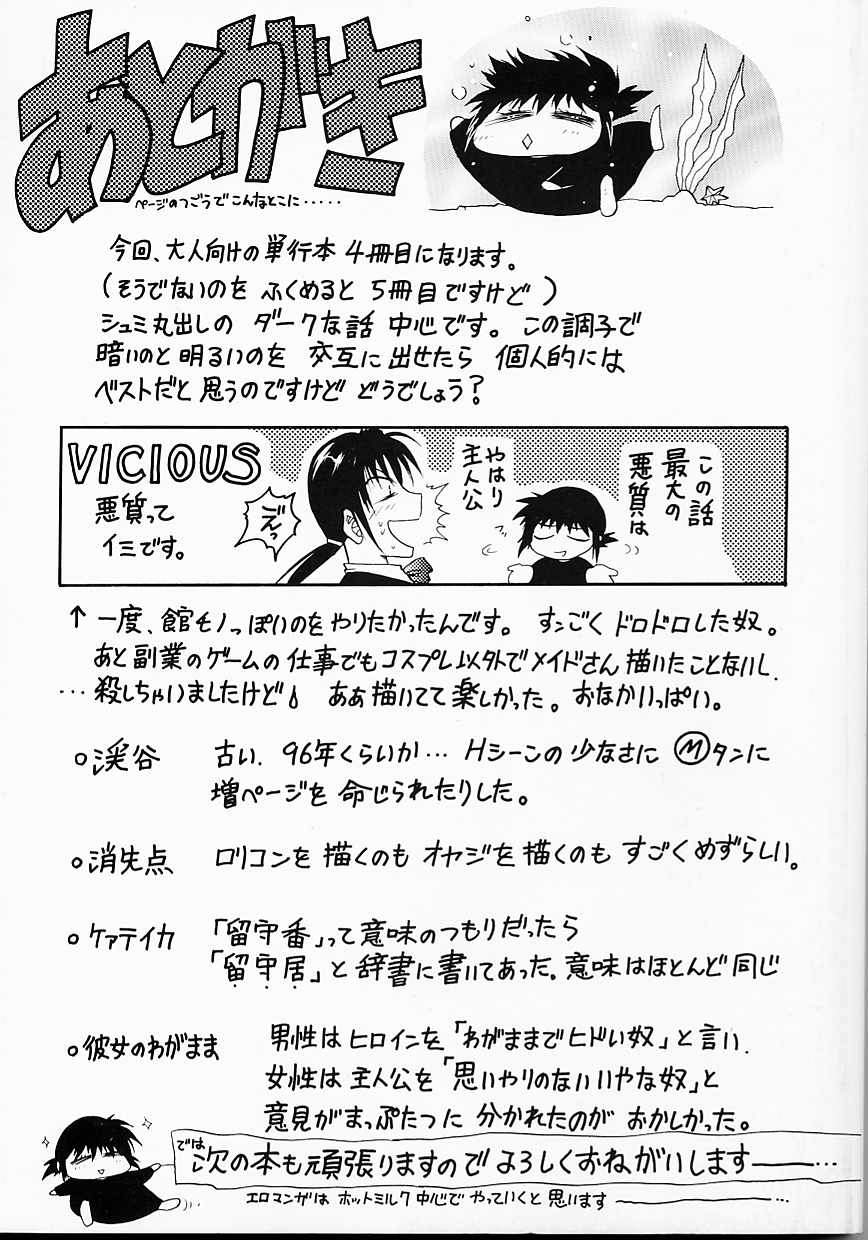 あとがき
ページのつごうでこんなとこに‥‥‥
今回、大人向けの単行本 4冊目になります。
(そうでないのを ふくめると 5冊目ですけど)
シュミ丸出しの ダークな話 中心です。この調子で
暗いのと 明るいのを 交互に出せたら 個人的には
ベストだと 思うのですけど どうでしょう?
VICIOUS
悪質って
イミです。
この話
最大の
悪質は
やはり
主人公
↑ 一度、館モノっぽいのをやりたかったんです。スンごく ドロドロした奴。
あと副業のゲームの仕事でもコスプレ以外でメイドさん描いたことないし.
…殺しちゃいましたけど ああ描いてて楽しかった。おなかいっぱい。
○渓谷 古い. 96年くらいか… Hシーンの少なさに Ⓜタンに
増ページを 命じられたりした。
○消失点 ロリコンを 描くのも オヤジを描くのも すごくめずらしい。
○ケァテイカ 「留守番」って意味のつもりだったら
「留守居」と辞書に書いてあった。意味はほとんど同じ
○彼女のわがまま 男性はヒロインを「わがままでヒドい奴」と言い.
女性は主人公を「思いやりのないいやな奴」と
意見がまっぷたつに 分かれたのが おかしかった。
では 次の本も頑張りますので よろしくおねがいします――…
エロマンガは ホットミルク中心で やっていくと 思います――…